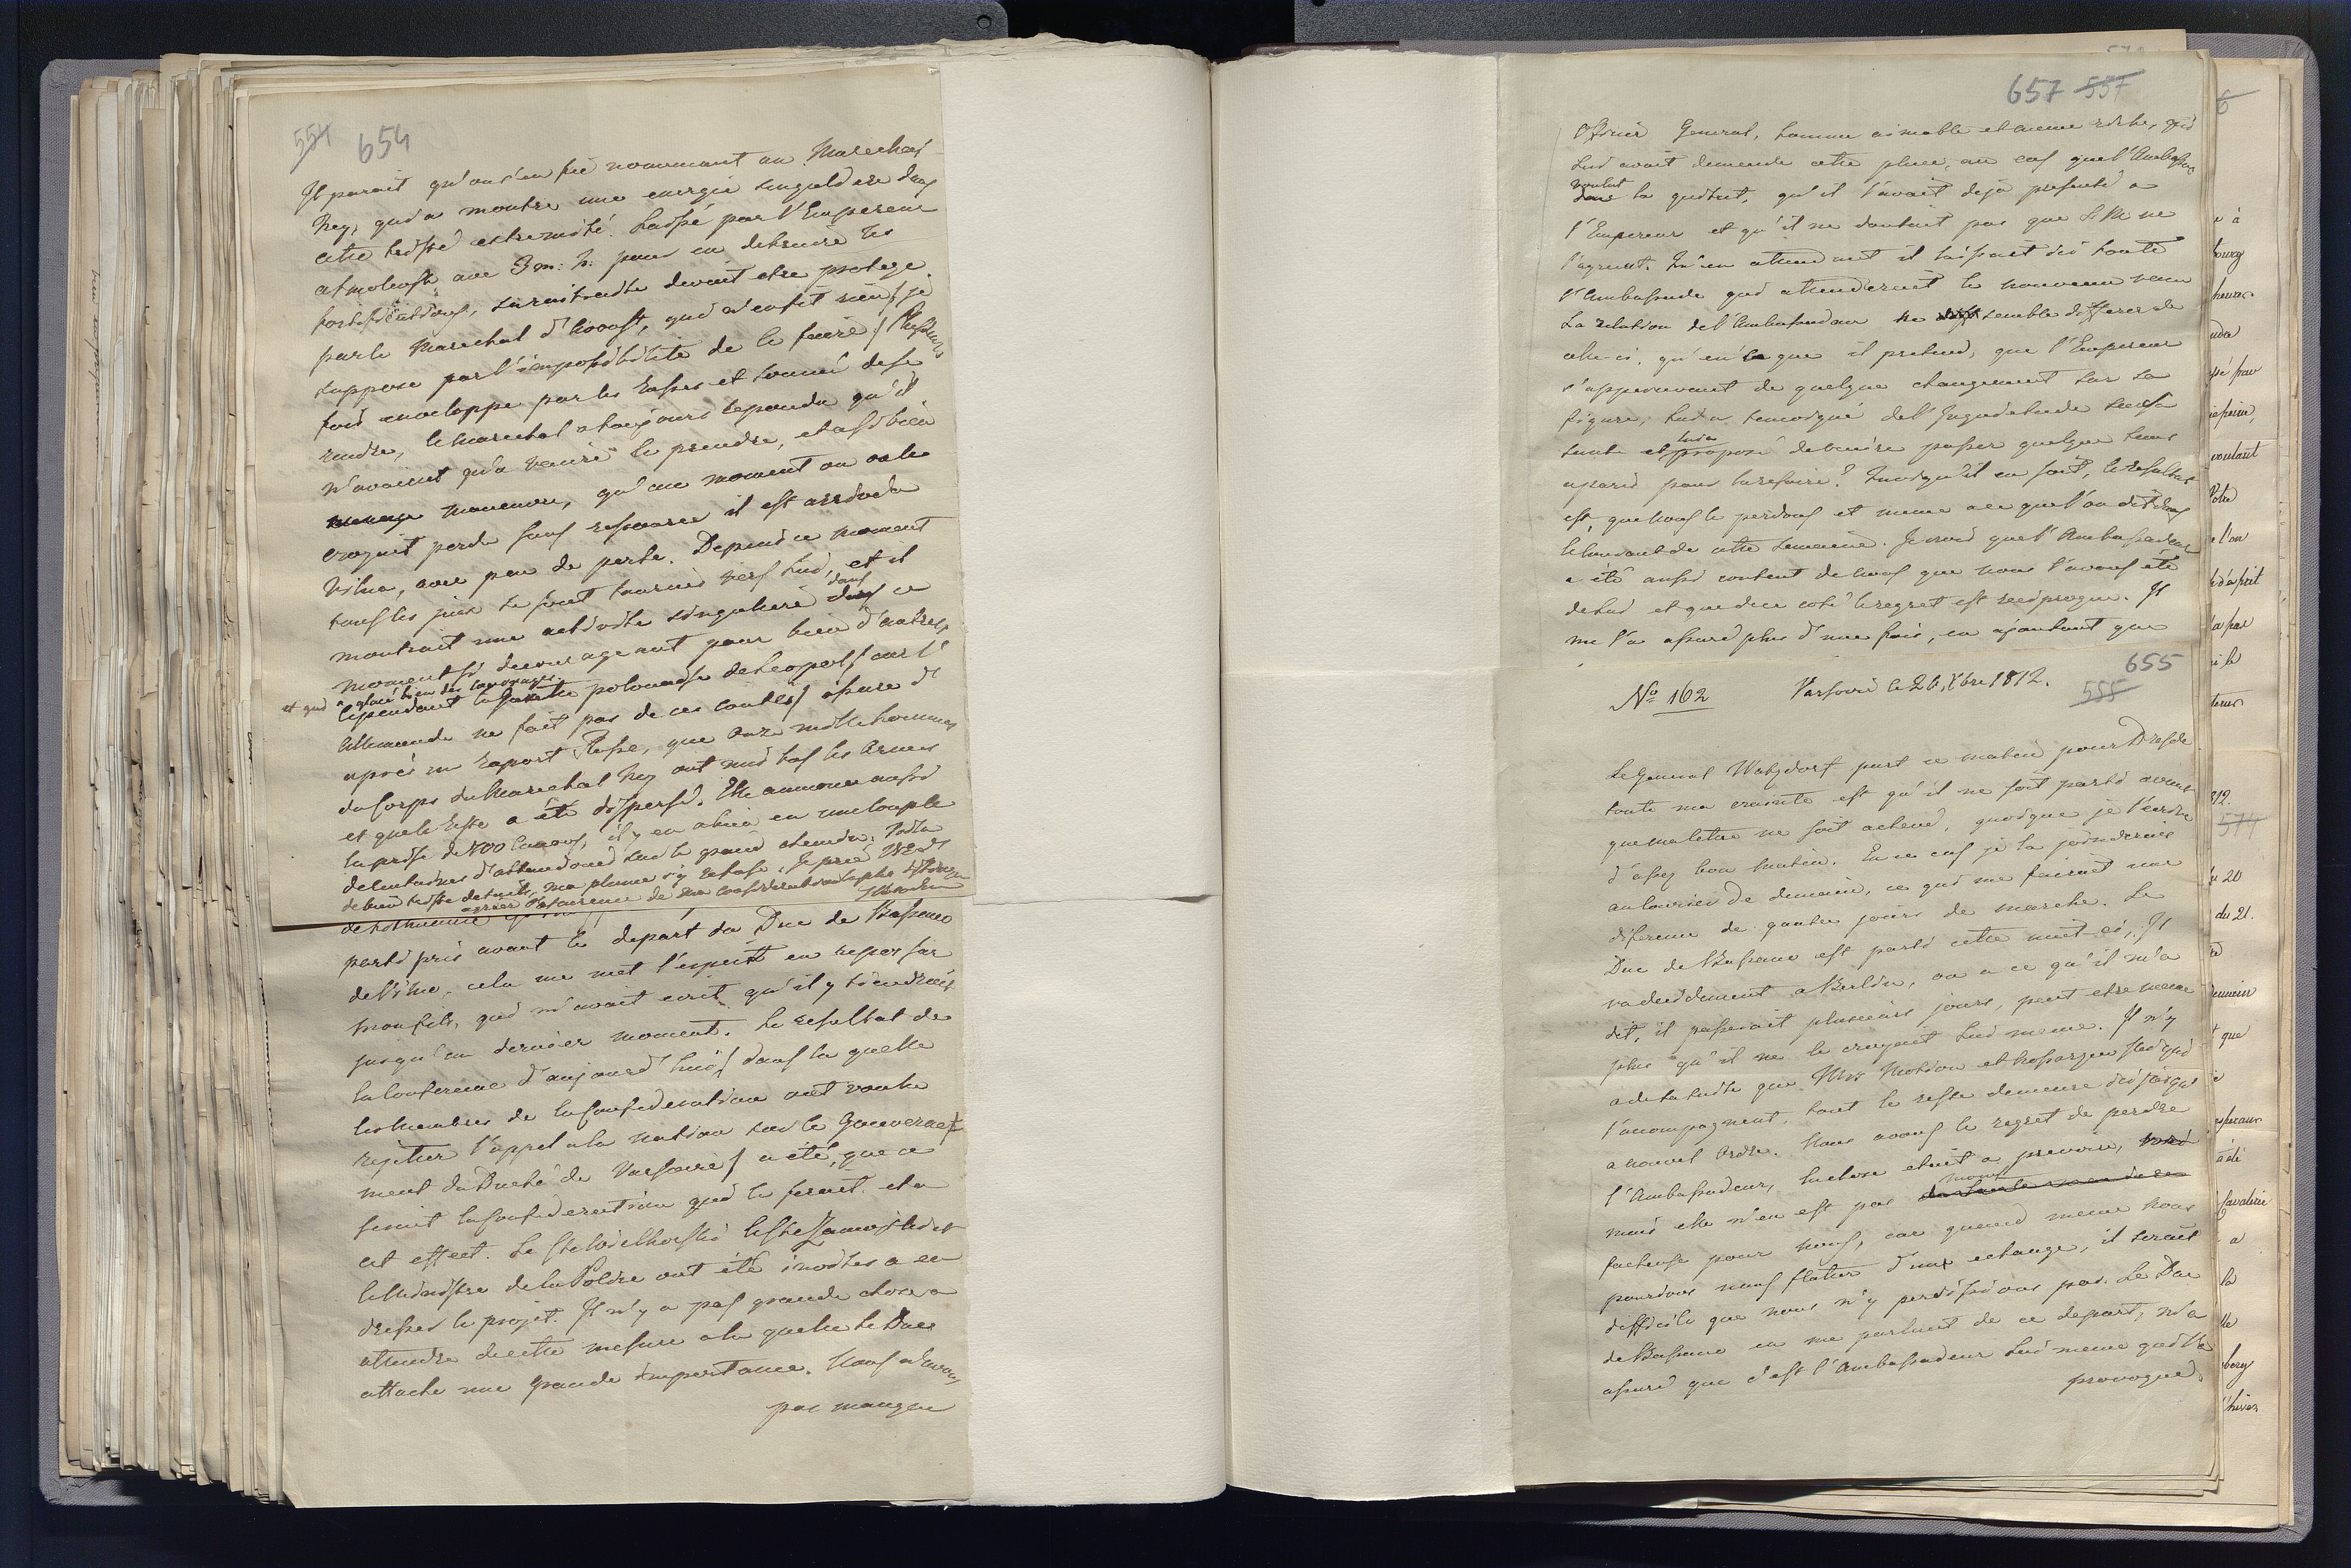 554 654
Il parait qu'on s'en fie nommement au Marechal
Ney, qui a montré une energie singuliere dans
cette triste extremité. Laissé par l'Empereur
a Smolensk avec 3 m: h: pour en detruire les
fortifications, sa retraite devait etre protegé
par le Marechal d'Avoust, qui n'en fit rien / je
suppose par l'impossibilité de le faire / Plusieurs
fois enveloppé par les Russes et sommé de se
rendre, le Marechal a toujours repondu qu'il
n'avaient qu'a venir le prendre, et a si bien
manoeuvré, qu'au moment on on le
croyait perdu sans ressource il est arrivé a
Vilna, avec peu de perte. Depuis ce moment
tous les yeux se sont tournés vers lui, et il
montrait une activité singuliere dans ce
moment si decourageant pour bien d'autres,
et qui a glacé bien des courages.
Cependant la Gazette polonaise de Leopol / car l'
Allemande ne fait pas de ces contes / assure d'
après un Raport Russe, que onze mille hommes
du Corps du Marechal Ney ont mis bas les Armes
et que le reste a été dispersé. Elle annonce aussi
la prise de 400 Canons, il y en a bien eu une couple
de centaines d'abandonnés sur le grand chemin. Voila
de bien tristes details, ma plume s'y refuse. Je prie V.E. d'
agréer l'assurence de ma consideration la plus distinguée
parti pris avant le depart du Duc de Bassano
de Vilna, cela me met l'esprit en repos sur
mon fils, qui m'avait ecrit qu'il y tiendrait
jusqu'au dernier moment. Le resultat de
la Conference d'aujourd'hui / dans la quelle
les Membres de la Confederation ont voulu
rejetter l'appel a la nation sur le Gouverne-
ment du Duché de Varsovie / a été, que ce
serait la Confederation qui le ferait. et a
cet effect. Le Cte Wielhorski le Cte Zamoiski et
le Ministre de la Police ont été invités a en
dresser le projet. Il n'y a pas grande chose a
attendre de cette mesure a la quelle le Duc
attache une grande importance. Nous n'avons
pas manqué
657 557
Officier General, homme aimable et meme riche, qui
lui avait demandé cette place, au cas que l'Ambassadeur
voulut la quitter, qu'il l'avait dejà presenté a
l'Empereur et qu'il ne doutait pas que S.M. ne
l'agreat. Qu'en attendant il laissait ici toute
l'Ambassade qui attenderait le nouveau venu
La relation de l'Ambassadeur ne semble differer de
celle-ci, qu'en ce que il pretend, que l'Empereur
s'appercevant de quelque changement sur sa
figure, lui a temoigné de l'Inquietude sur sa
santé et lui a proposé de venir passer quelque tems
a paris pour la refaire. Quoiqu'il en soit, le resultat
est, que nous le perdons et meme a ce que l'on dit dans
le courant de cette semaine. Je crois que l'Ambassadeur
a été aussi content de nous que nous l'avons été
de lui et que de ce coté le regret est reciproque. Il
me l'a assuré plus d'une fois, en ajoutant que
655
555
No 162 Varsovie le 26, Xbre 1812.
Le General Watzdorf part ce matin pour Dresde
toute ma crainte est qu'il ne soit parti avant
que ma lettre ne soit achevé, quoique je l'ecrive
d'assez bon matin. En ce cas je la joinderais
au Courier de demain, ce qui me fairait une
diference de quatre jours de marche. Le
Duc de Bassano est parti cette nuit-ci. Il
va decidement a Berlin, ou a ce qu'il m'a
dit, il passerait plusieurs jours, peut etre meme
plus qu'il ne le croyait lui meme. Il n'y
a de sa suite que Mrs Monion et qui
l'accompagnent, tout le reste demeure ici jusqu'
a nouvel Ordre. Nous avons le regret de perdre
l'Ambassadeur, la chose etait a prevoir,
mais elle n'en est pas moins
facheuse pour nous, car quand meme nous
pourrions nous flatter d'un echange, il serait
difficile que nous n'y perdissions pas. Le Duc
de Bassano en me parlant de ce depart, m'a
assuré que c'est l'Ambassadeur lui meme qui l'a
provoqué.